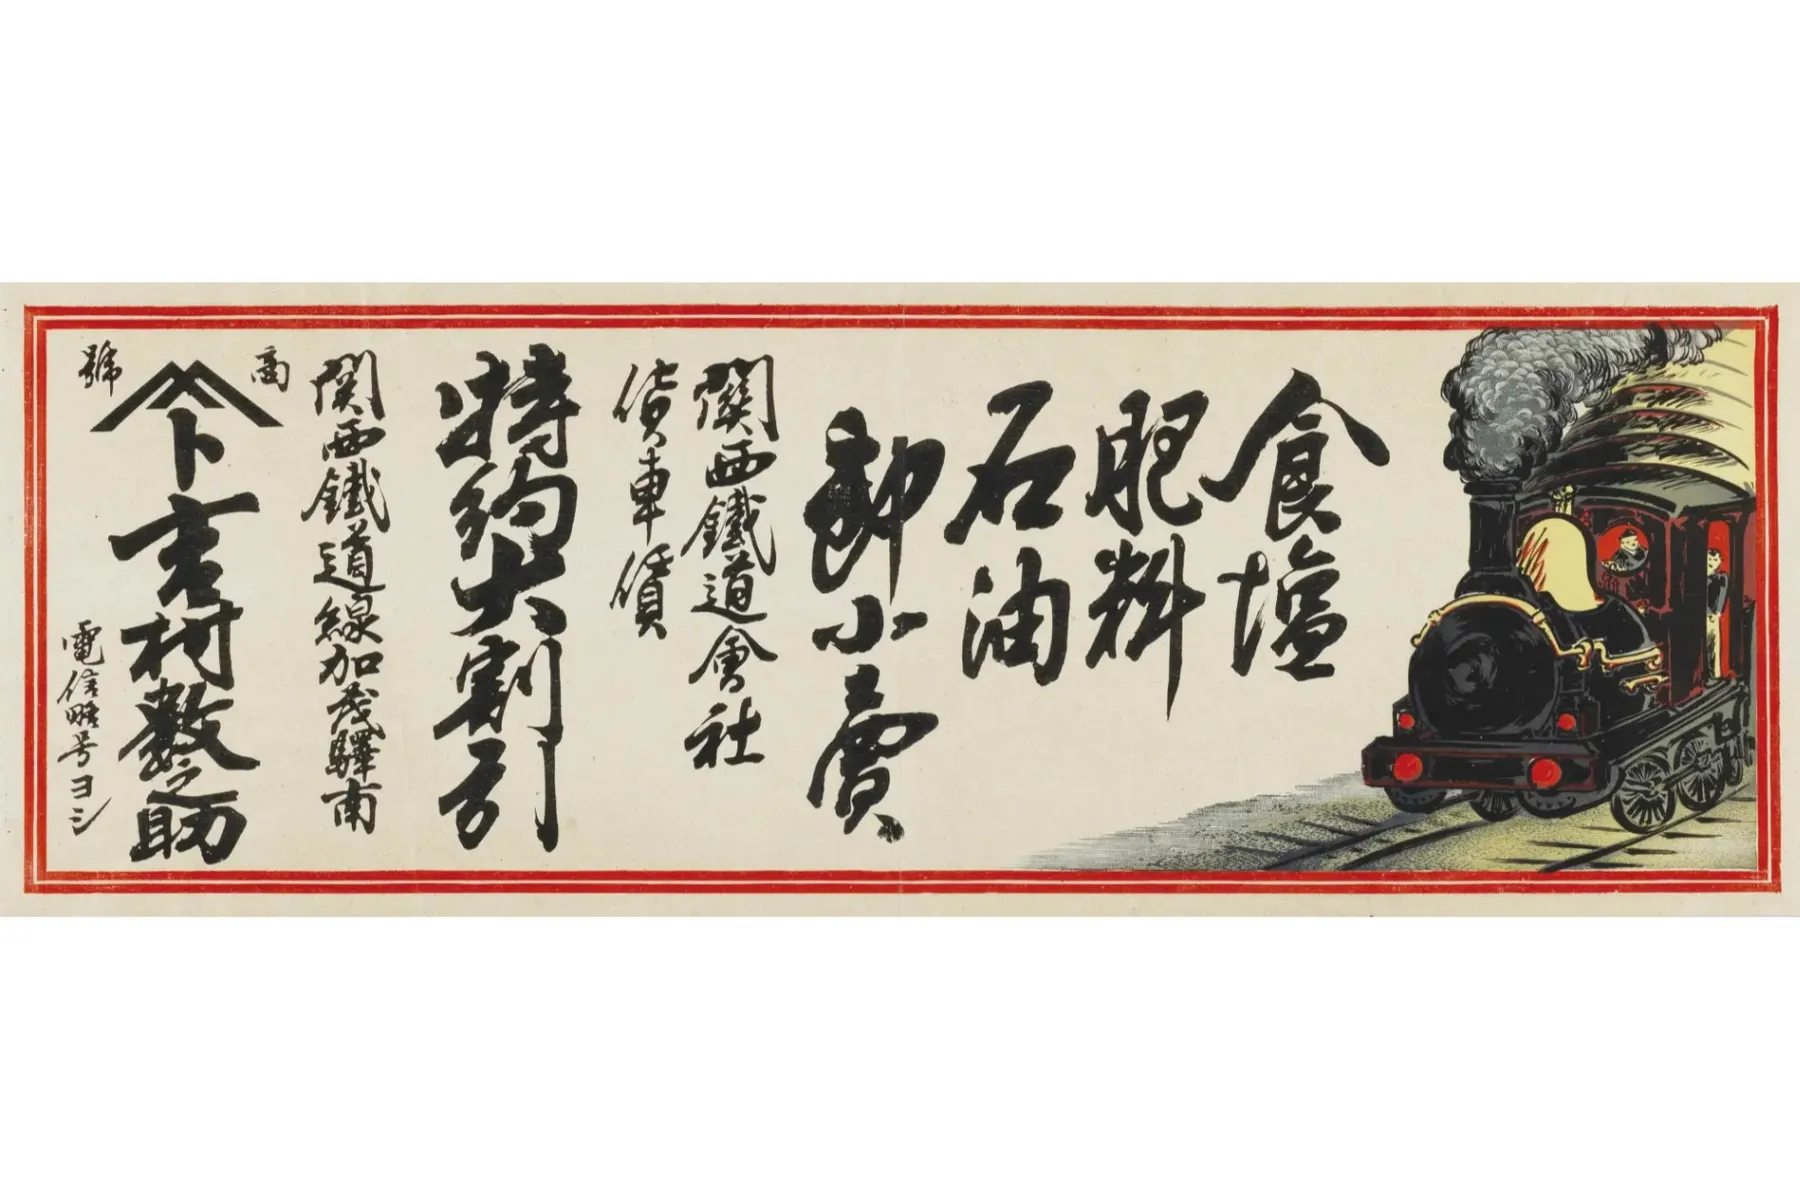 食塩
肥料
石油
卸小賣
関西鐵道會社
貨車賃
特約大割引
関西鐵道線加茂驛南
商號
卜
吉村数之助
電信略号ヨシ